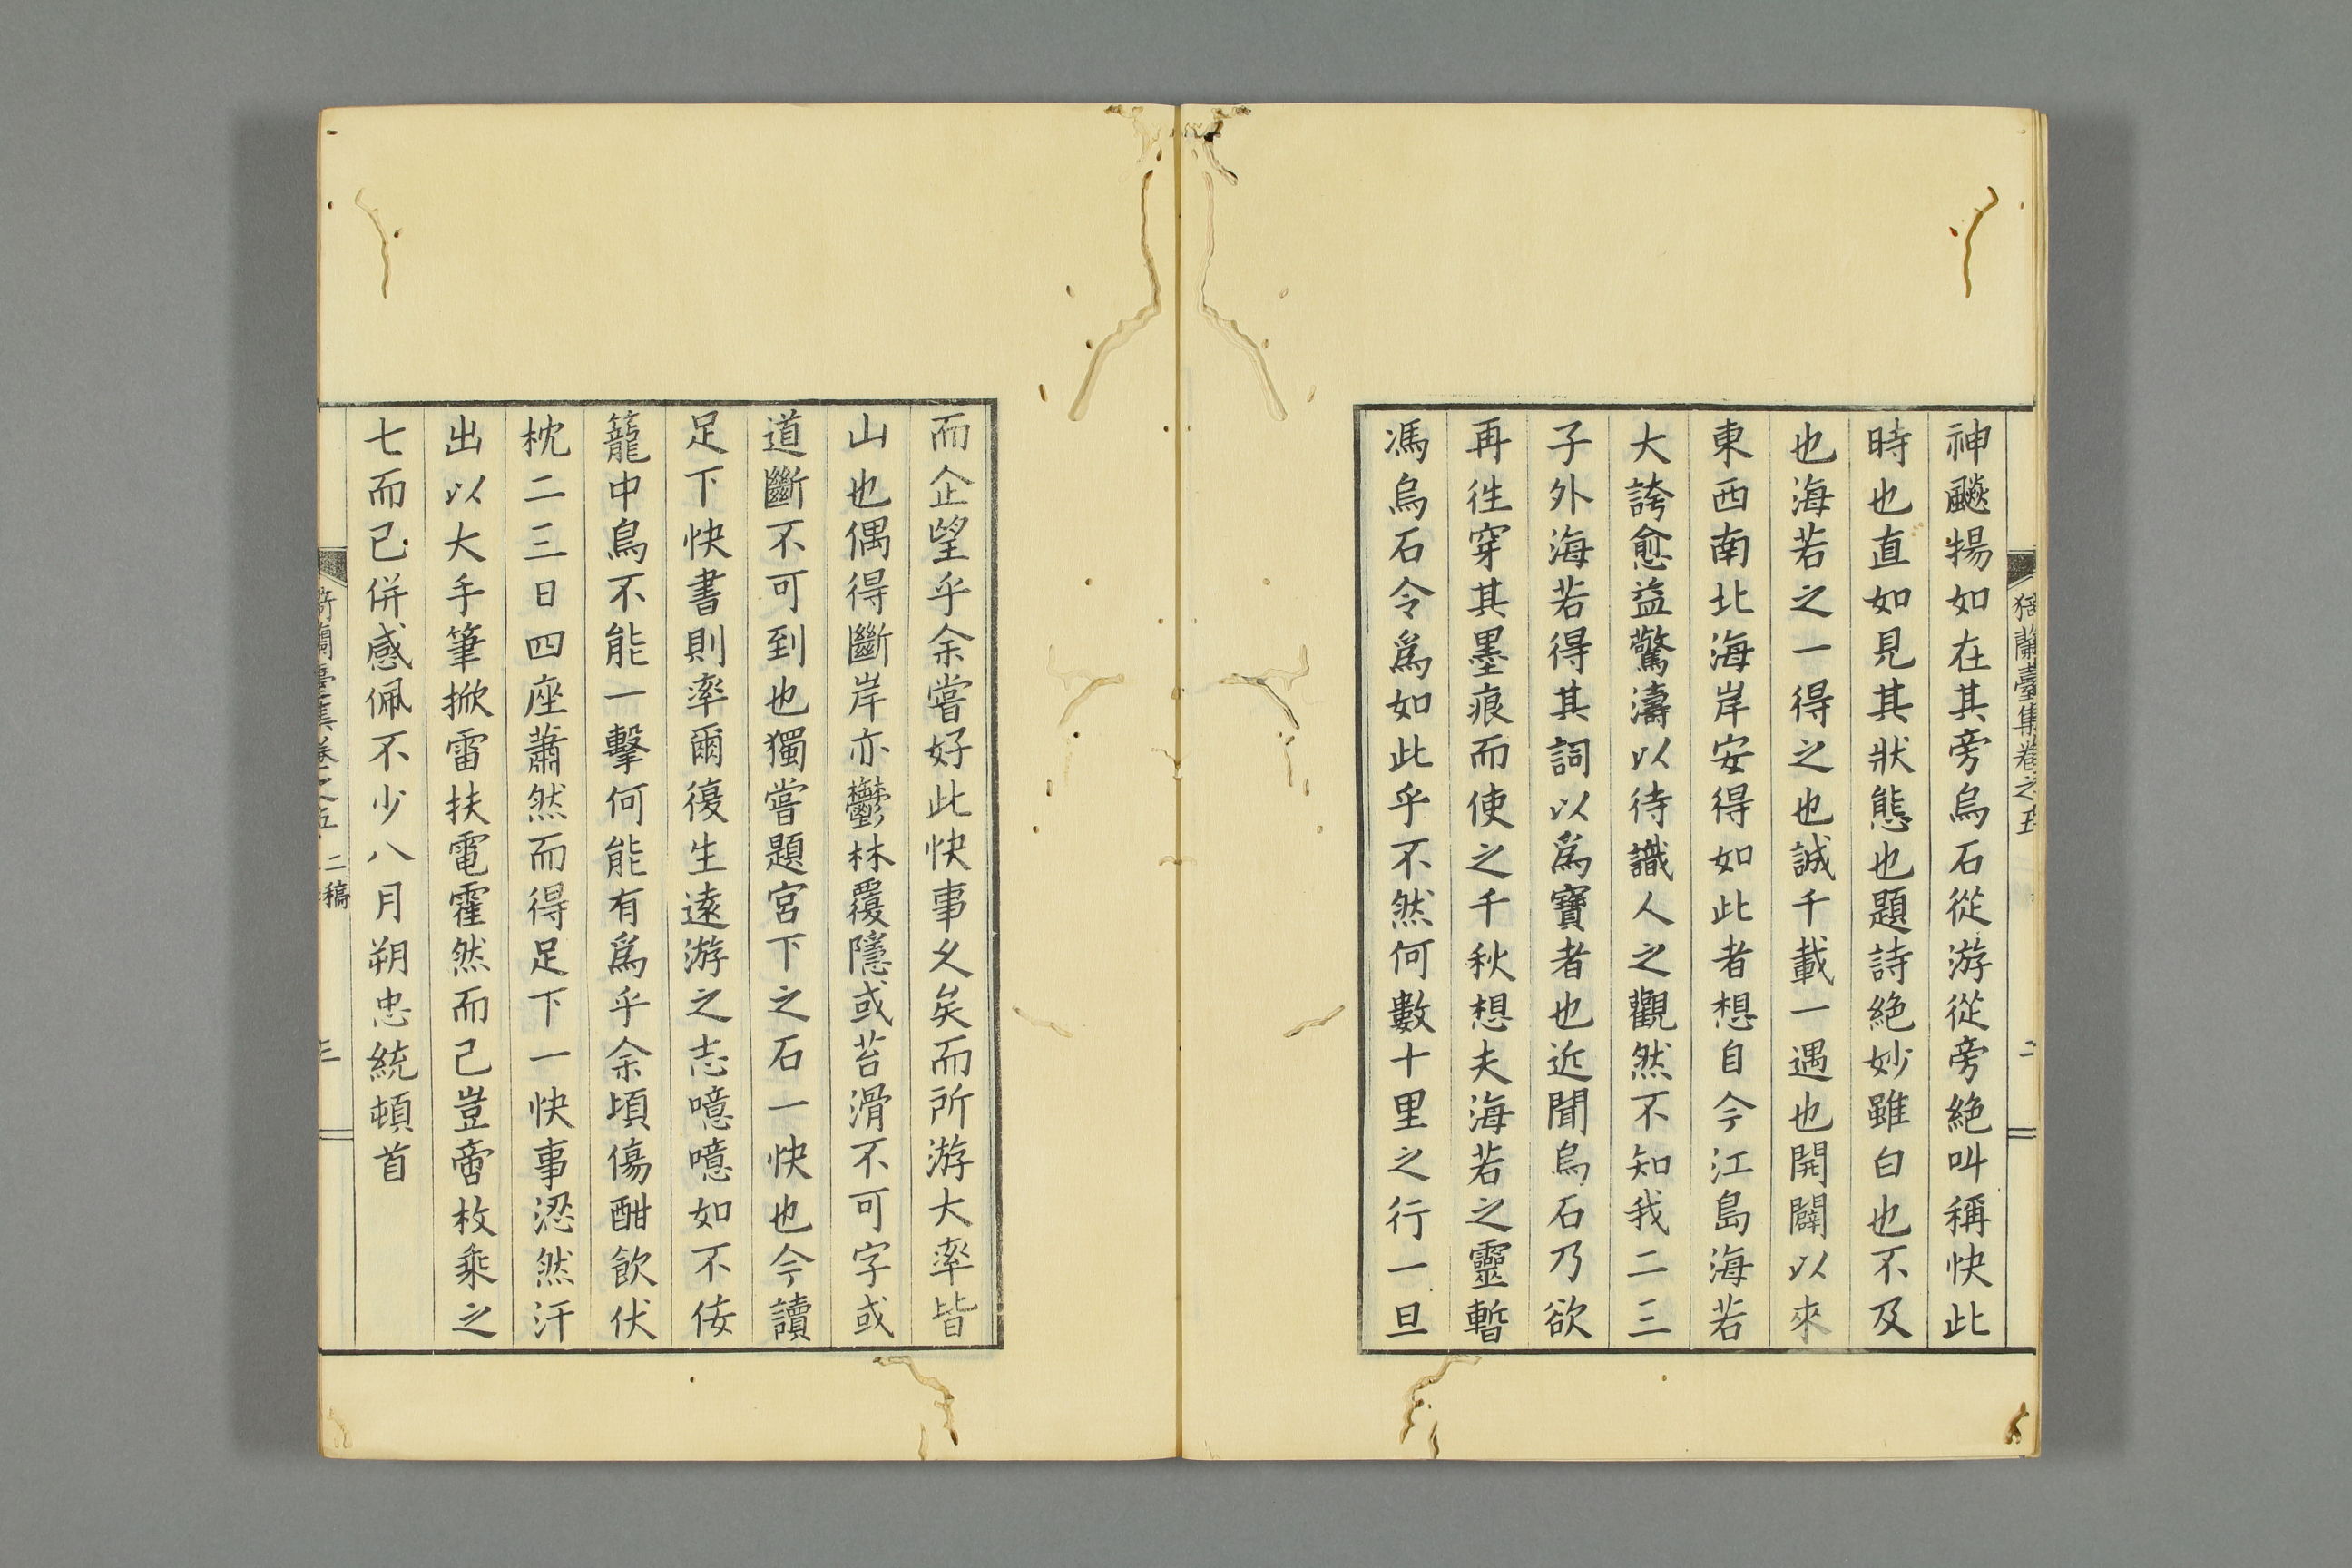 猗蘭臺集卷之五
二
神飈揚如在其旁烏石從游從旁絶叫稱快此
時也直如見其狀態也題詩絶妙雖白也不及
也海若之一得之也誠千載一遇也開闢以來
東西南北海岸安得如此者想自今江島海若
大誇愈益驚濤以待識人之觀然不知我二三
子外海若得其詞以爲寶者也近聞烏石乃欲
再徃穿其墨痕而使之千秋想夫海若之靈暫
馮烏石令爲如此乎不然何數十里之行一旦
而企望乎余嘗好此快事久矣而所游大率皆
山也偶得斷岸亦鬱林覆隱或苔滑不可字或
道斷不可到也獨嘗題宮下之石一快也今讀
足下快書則率爾復生遠游之志噫噫如不佞
籠中鳥不能一擊何能有爲乎余頃傷酣飲伏
枕二三日四座蕭然而得足下一快事涊然汗
出以大手筆掀雷扶電霍然而已豈啻枚乘之
七而已併感佩不少八月朔忠統頓首
猗蘭臺集卷之五 二稿
三